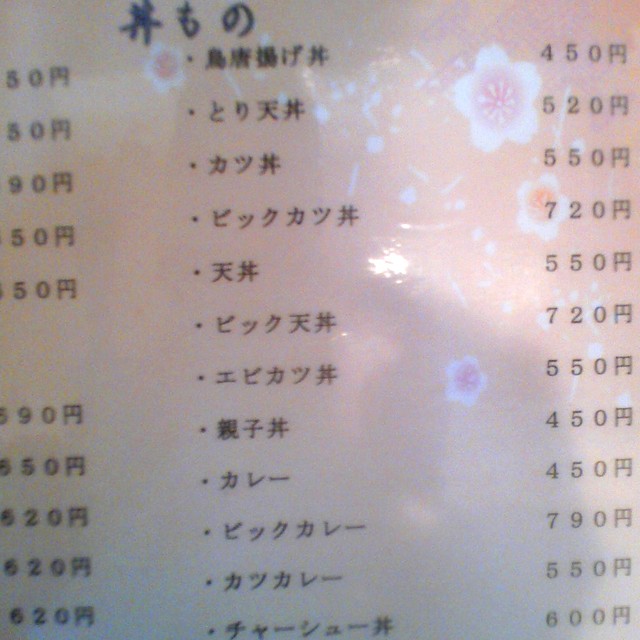 丼もの
・鳥唐揚げ丼 450円
・とり天丼 520円
・カツ丼 550円
・ビックカツ丼 720円
・天丼 550円
・ビック天丼 720円
・エビカツ丼 550円
・親子丼 450円
・カレー 450円
・ビックカレー 790円
・カツカレー 550円
・チャーシュー丼 600円
50円
50円
90円
50円
50円
690円
650円
620円
620円
620円